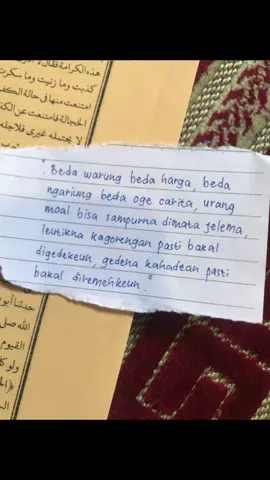 هذه الكرامة فقال
كذبت وما زنيت وما سكرت
امتنعت منها فى حالة الكف
الخجالة فامتنعت عن الكذ
" Beda warung beda harga, beda
ngariung beda oge carita, urang
moal bisa sampurna dimata jelema,
leutikna kagorengan pasti bakal
digedekeun, gedena kahadean pasti
bakal diremehkeun."
الله صل
القيوم
ولو كا